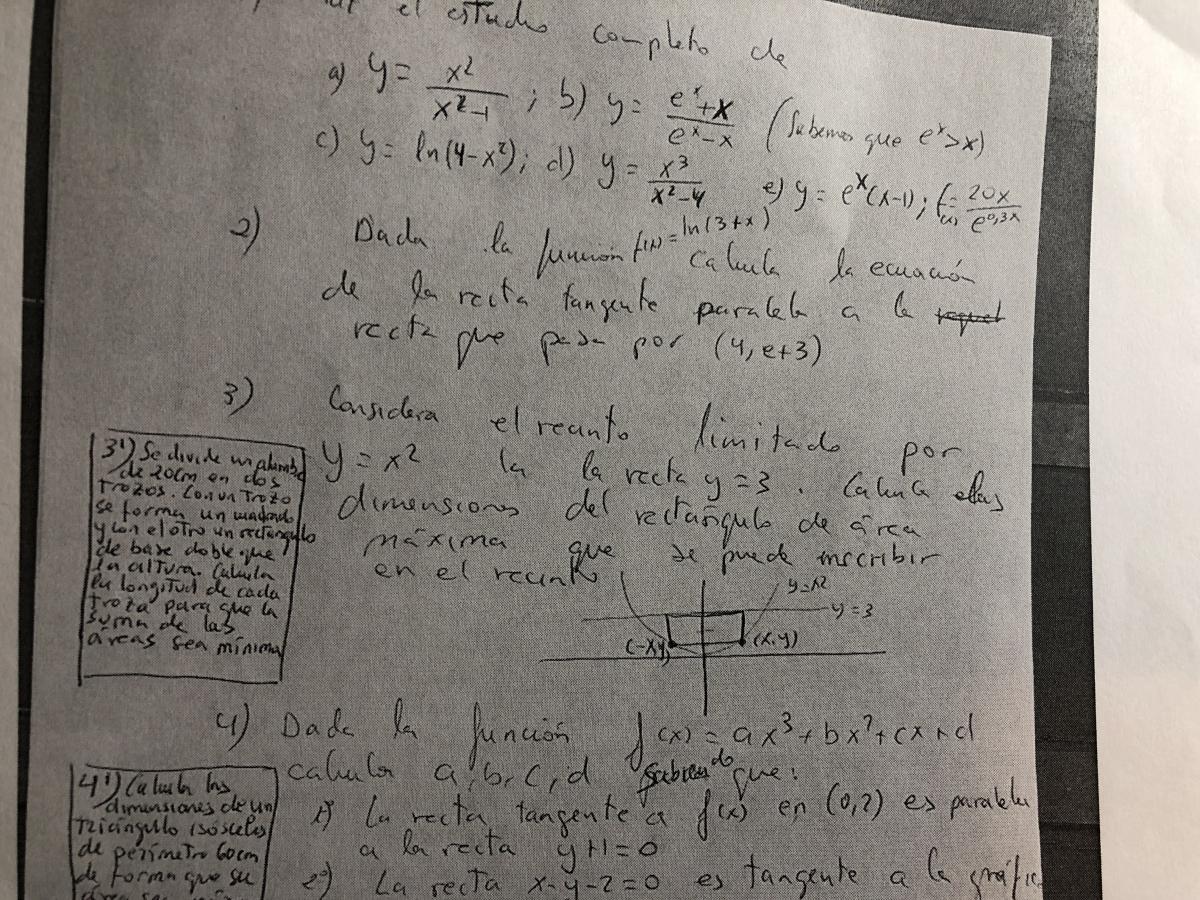 el estudio completo de
a) y = x²/(x²-1) ; b) y = (eˣ+x)/(eˣ-x) (Sabemos que eˣ>x)
c) y = ln(4-x²); d) y = x³/(x²-4) e) y = eˣ(x-1); f(x) = 20x/e^(0,3x)
2) Dada la función f(x) = ln(3+x) calcula la ecuación
de la recta tangente paralela a la
recta que pasa por (4, e+3)
3) Considera el recinto limitado por
y = x² la la recta y = 3. Calcula
dimensiones del rectángulo de área
máxima que se puede inscribir
en el recinto
y=x²
y=3
(-x,y)
(x,y)
3') Se divide un alambre
de 20cm en dos
trozos. Con un trozo
se forma un cuadrado
y con el otro un rectángulo
de base doble que
la altura. Calcula
la longitud de cada
troza para que la
suma de las
áreas sea mínima
4) Dada la función f(x) = ax³+bx²+cx+d
calcula a, b, c, d sabiendo que:
1º) La recta tangente a f(x) en (0,2) es paralela
a la recta y+1=0
2º) La recta x-y-2=0 es tangente a la gráfica
4') Calcula las
dimensiones de un
triángulo isósceles
de perímetro 60cm
de forma que su
área